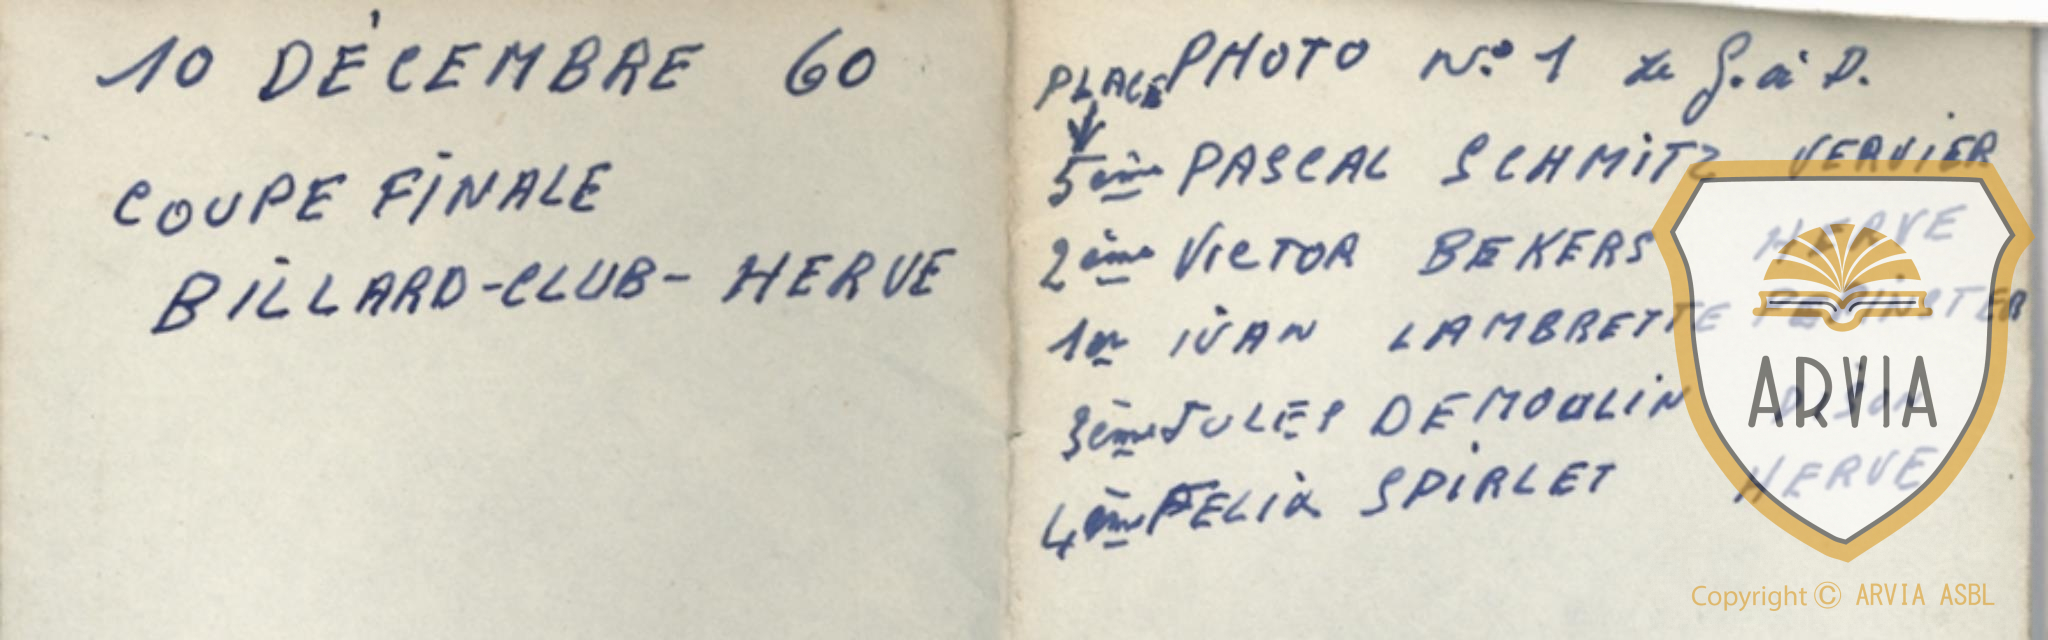 10 DÉCEMBRE 60
COUPE FINALE
BILLARD-CLUB- HERVE
PHOTO N° 1 de G. à D.
PLACE
5ème PASCAL SCHMITZ VERVIER
2ème VICTOR BEKERS HERVE
1er IVAN LAMBRETTE PEPINSTER
3ème JULES DEMOULIN DISON
4ème FELIX SPIRLET HERVE
ARVIA
Copyright © ARVIA ASBL